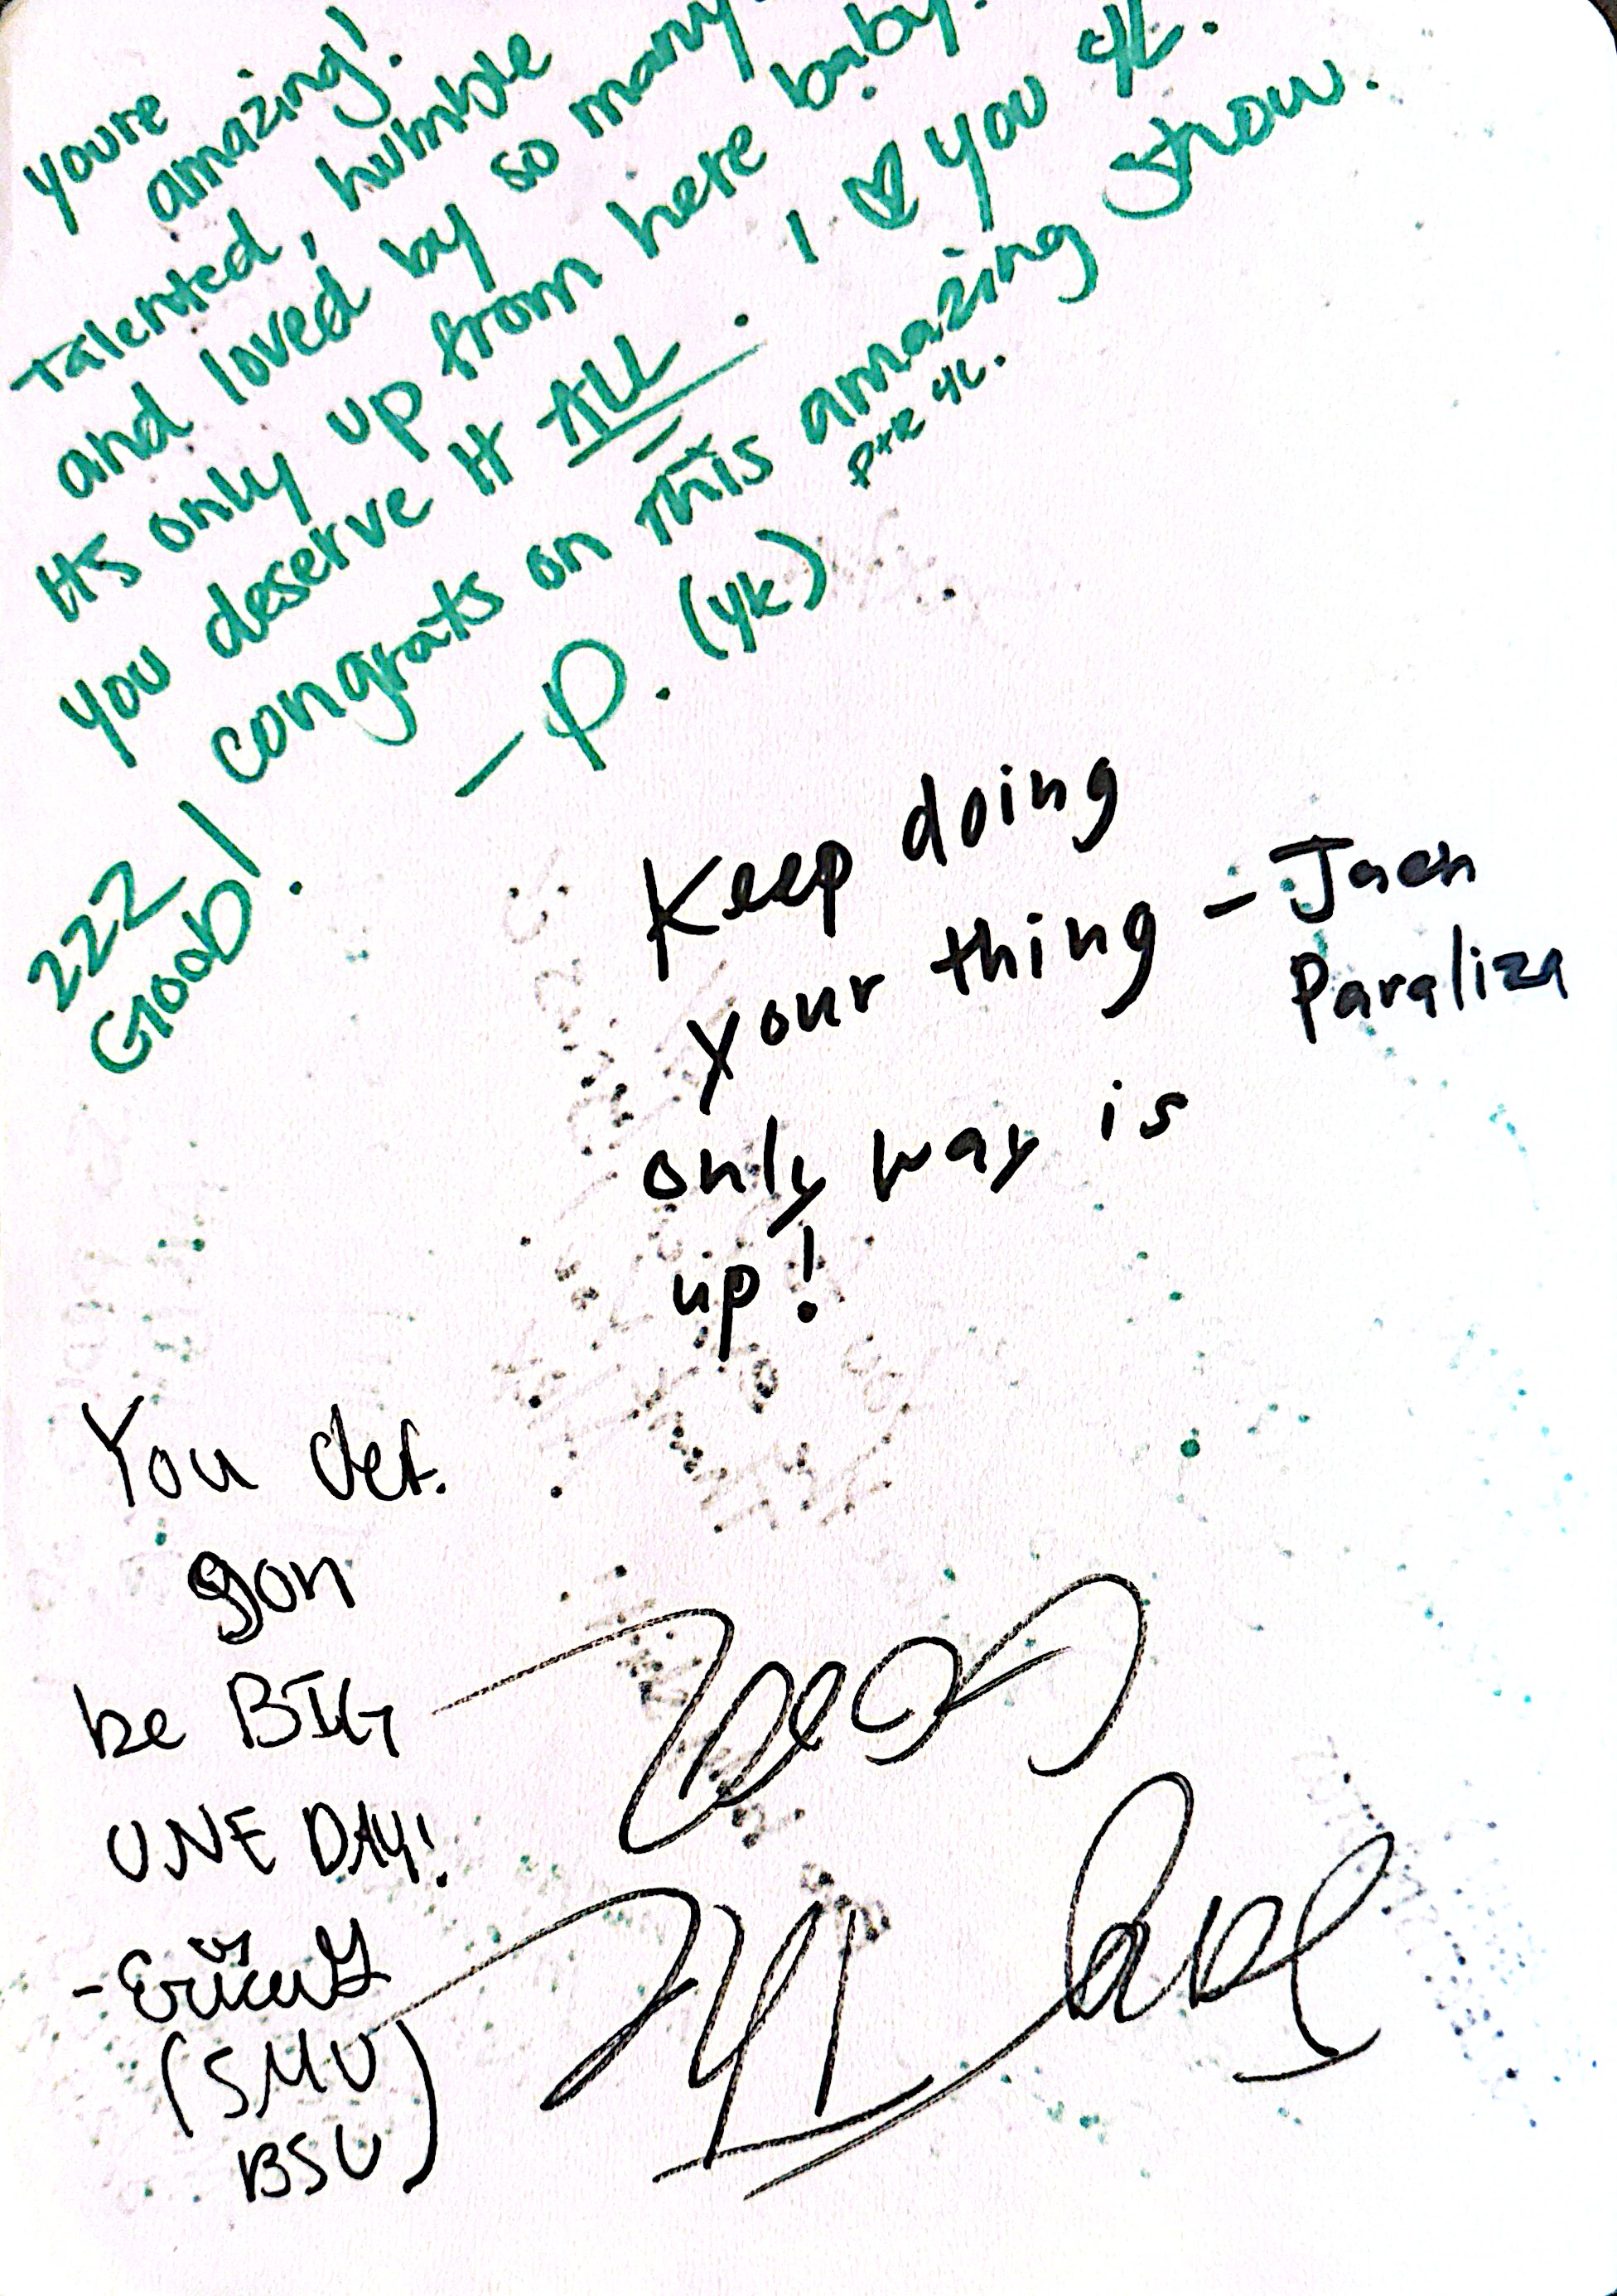 youre
amazing!
Talented, humble
and loved by so many.
Its only up from here baby.
You deserve it ALL. I ♡ you 4L.
congrats on this amazing show.
P+R 4L.
- P. (yk)
222
Good!
Keep doing
your thing - Jaen
Paraliza
only way is
up!
You def.
gon
be BIG
ONE DAY!
(SMU
BSU)